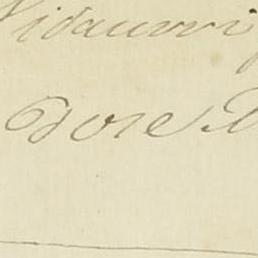 Vidaurri
Jose